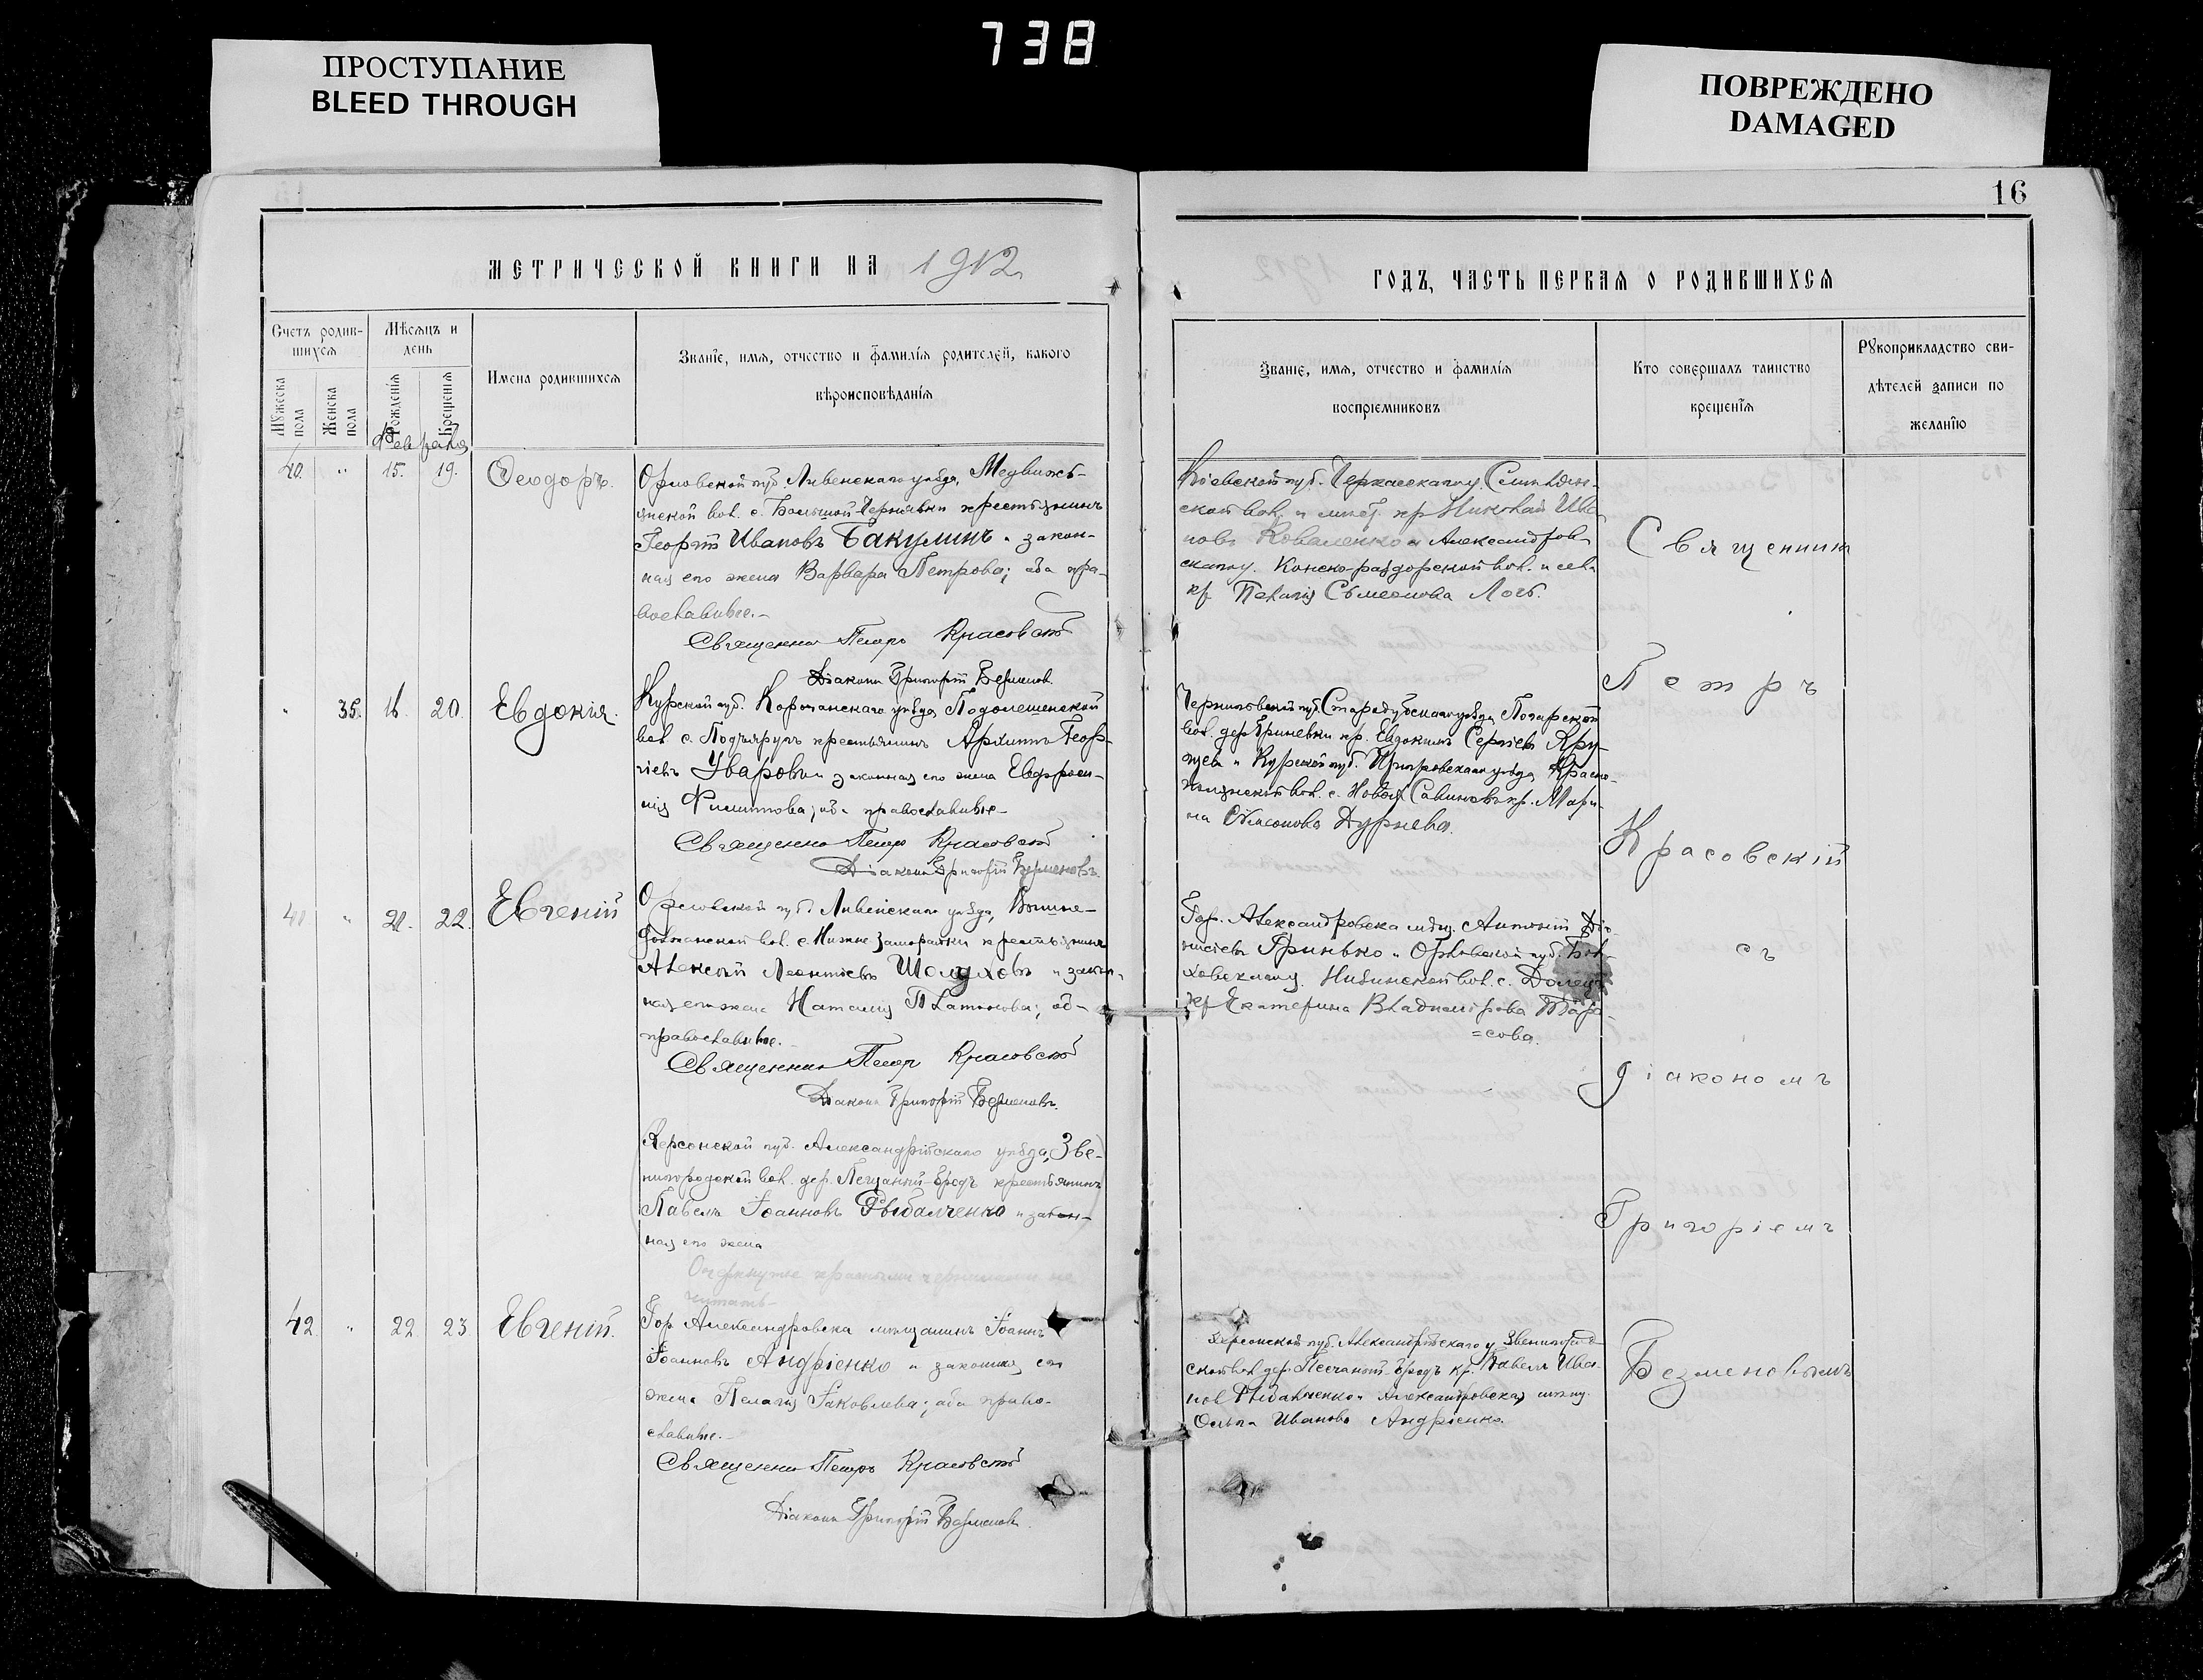 738
ПРОСТУПАНИЕ
BLEED THROUGH
ПОВРЕЖДЕНО
DAMAGED
16
МЕТРИЧЕСКОЙ КНИГИ НА 1912
ГОДЪ, ЧАСТЬ ПЕРВАЯ О РОДИВШИХСЯ
Счетъ родив-
шихся
Мѣсяцъ и
день
Мужеска
пола
Женска
пола
Рожденія
Крещенія
Имена родившихся
Званіе, имя, отчество и фамилія родителей, какого
вѣроисповѣданія
Званіе, имя, отчество и фамилія
воспріемниковъ
Кто совершалъ таинство
крещенія
Рукоприкладство сви-
дѣтелей записи по
желанію
Февраля
40. " 15. 19. Ѳеодоръ.
Орловской губ. Ливенскаго уѣзда,
вол. с. Большой Чернавки крестьянинъ
Георгій Ивановъ Бакулинъ и закон-
ная его жена Варвара Петрова; оба пра-
вославные.
Священникъ Петръ Красовскій
Діаконъ Григорій Безменовъ.
Кіевской губ. Черкасскаго у.
вол. и кр Николай Ива
новъ Коваленко и Александров
скаго у. Конско-раздорской вол. и села
кр Пелагія Сѵмеонова
" 35. 16. 20. Евдокія.
Курской губ. Корочанскаго уѣзда
вол. с. Подъяругъ крестьянинъ Архиппъ Геор-
гіевъ Уваровъ и законная его жена Евфроси-
нія Филиппова; оба православные
Священникъ Петръ Красовскій
Діаконъ Григорій Безменовъ.
Черниговской губ. Стародубскаго уѣзда Погарской
вол. дер. Гриневки кр. Евдокимъ Сергіевъ
и Курской губ. уѣзда
вол. с. кр. Мари-
на
41 " 20. 22. Евгеній
Орловской губ. Ливенскаго уѣзда,
вол. с. крестьянинъ
Алексій Леонтіевъ Шолуховъ и закон-
ная его жена Наталія Платонова; оба
православные.
Священникъ Петръ Красовскій
Діаконъ Григорій Безменовъ.
Гор. Александровска мѣщ. Антоній Діо-
нисіевъ Гринько и Орловской губ. Бол-
ховскаго у. вол. с.
кр Екатерина Владимірова Тара-
=сова.
Херсонской губ. Александрійскаго уѣзда, Зве-
нигородской вол. дер. Песчаный-Бродъ крестьянинъ
Павелъ Іоанновъ Рыбалченко и закон-
ная его жена
Очеркнутое красными чернилами не
читать
42. " 22. 23. Евгеній.
Гор. Александровска мѣщанинъ Іоаннъ
Іоанновъ Андріенко и законная его
жена Пелагія Іаковлева; оба право-
славные.
Священникъ Петръ Красовскій
Діаконъ Григорій Безменовъ.
Херсонской губ. Александрійскаго у. Звенигород-
ской вол. дер. Песчаный Бродъ кр. Павелъ Ива-
новъ Рыбалченко и Александровская мѣщ.
Ольга Иванова Андріенко.
Священникъ
Петръ
Красовскій
съ
діакономъ
Григоріемъ
Безменовымъ